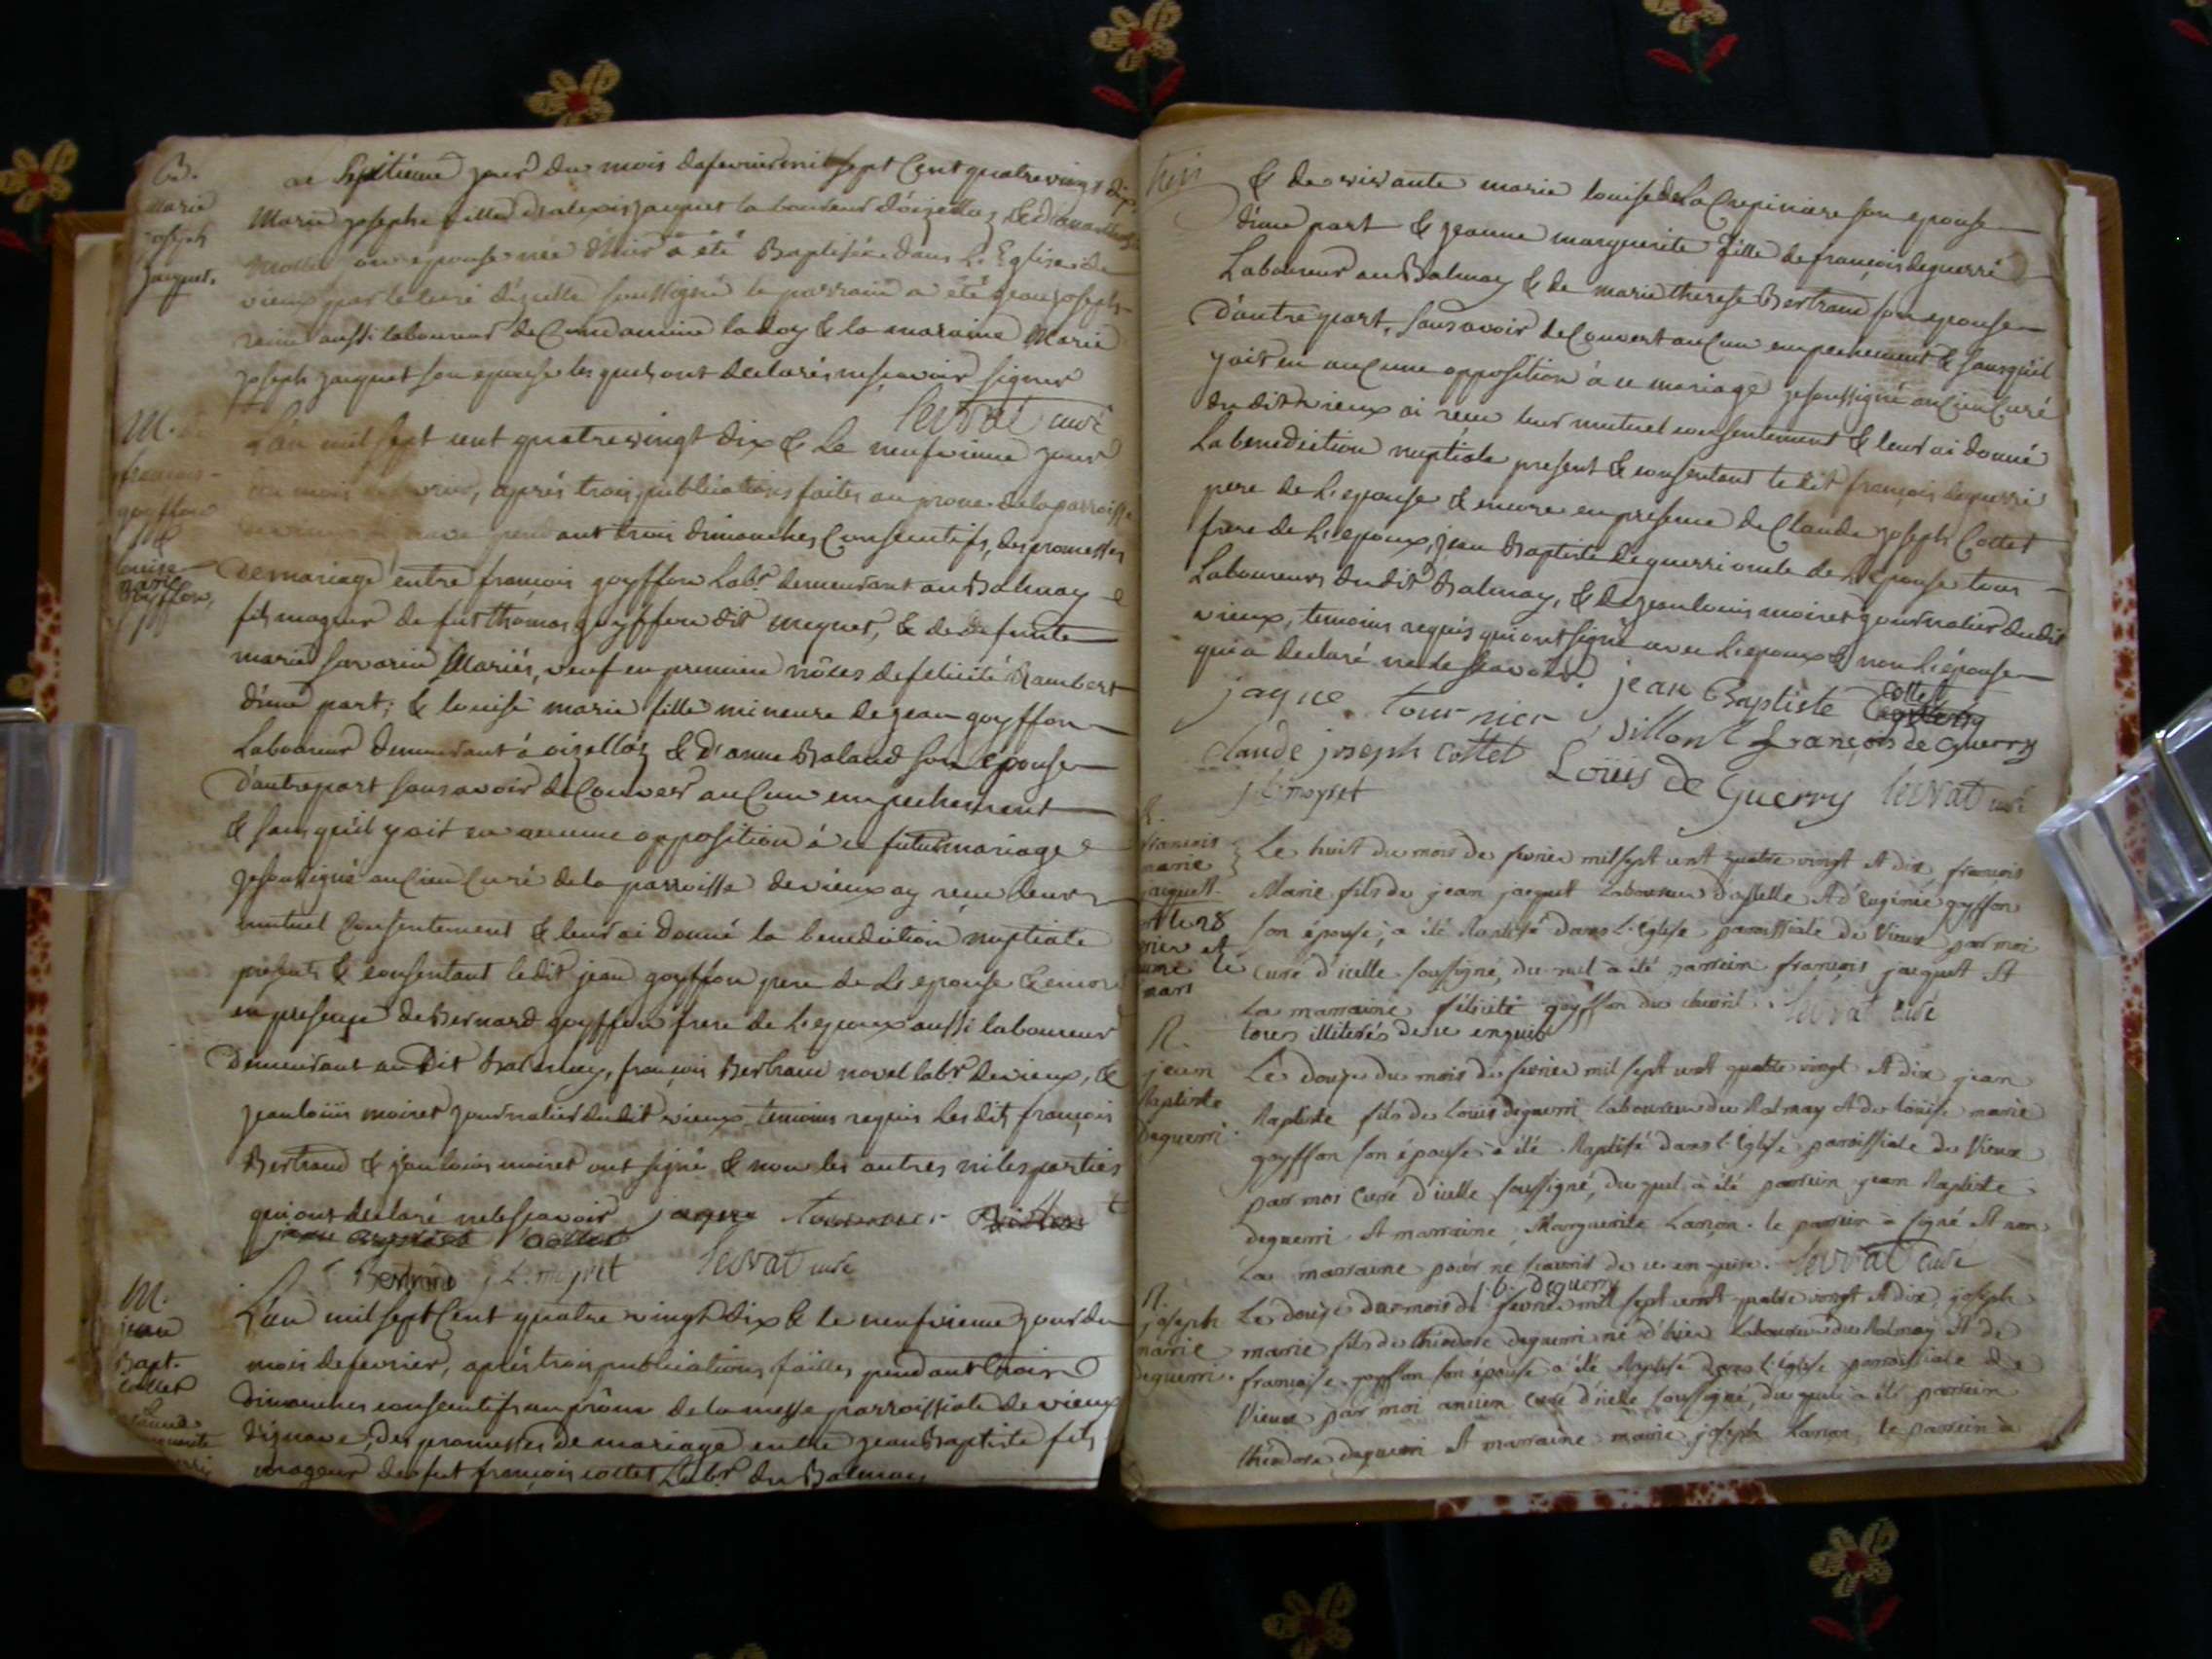 B.
Marie
joseph
jacquet.
Ce septième jour du mois de fevrier mil sept cent quatre vingt dix
Marie josephe fille d'alexis jacquet laboureur d'oizellaz &
son épouse née d'hier a été Baptisée dans L'Eglise de
vieux par le curé d'icelle soussigné le parrain a été jean joseph
aussi laboureur de Condamine la doy & la maraine Marie
joseph jacquet son epouse lesquels ont declarés ne scavoir signer
Servat curé
M.
françois
goyffon
&
louise
marie
goyffon,
L'an mil sept cent quatre vingt dix & Le neufvieme jour
du mois de fevrier, après trois publications faites au prone de la parroisse
pendant trois dimanches Consecutifs, des promesses
de mariage entre françois goyffon Labr. demeurant au Balmay
fils mageur de fut thomas goyffon dit meynet, & de defunte
marie savarin Mariés, veuf en premiere nôces de felicité Rambert
d'une part; & louise marie fille mineure de jean goyffon
Laboureur demeurant à oizellaz & d'anne Baland son épouse
d'autre part sans avoir deCouver auCun empechement
& sans qu'il y ait eu aucune opposition à ce futur mariage
je soussigné anCien Curé de la parroisse de vieux ay reçu leur
mutuel Consentement & leur ai donné la benediction nuptiale
présents & consentant ledit jean goyffon pere de L'epouse & encor
en presence de Bernard goyffon frere de L'epoux aussi laboureur
demeurant au dit Balmay, françois Bertrand novel labr. de vieux, &
jean loüis moiret journalier dudit vieux temoins requis Lesdits françois
Bertrand & jean louis moiret ont signé & non les autres ni les parties
qui ont declaré ne le scavoir jaque tournier
Bertrand j L. moyret Servat curé
M.
jean
Bapt.
cottet
L'an mil sept Cent quatre vingt dix & le neufvieme jour du
mois de fevrier, après trois publications faittes pendant trois
dimanches consecutifs au prône de la messe parroissiale de vieux
d'iznave, des promesses de mariage entre jean Baptiste fils
mageur de fut françois cottet Labr. du Balmay
& de vivante marie louise de La Crepiniere son epouse
d'une part & jeanne marguerite fille de françois deguerri
Laboureur au Balmay & de marie therese Bertrand son epouse
d'autre part, sans avoir deCouvert auCun empechement & sans qu'il
y ait eu auCune opposition à ce mariage je soussigné anCien Curé
du dit vieux ai reçu leur mutuel consentement & leur ai donné
La benediction nuptiale present & consentant ledit françois deguerri
pere de L'epouse & encore en presence de Claude joseph Cottet
frere de L'epoux, jean Baptiste deguerri oncle de L'épouse tous
Laboureurs dudit Balmay, & de jean louis moiret journalier dudit
vieux, temoins requis qui ont signé avec L'epoux & non L'épouse
qui a declaré ne le scavoir. jean Baptiste cottet
jaque tournier Sillont françois de Guerry
Claude joseph Cottet Loüis de Guerry Servat curé
j L moyret
françois
marie
jacquet
Le huit du mois de fevrier mil sept cent quatre vingt et dix françois
Marie fils de jean jacquet Laboureur et d'Eugénie goyffon
son épouse, a été Baptisé dans L'église paroissiale de Vieux par moi
curé d'icelle soussigné, duquel a été parrein françois jacquet et
La marraine félicité goyffon
tous illiterés de ce enquis Servat curé
jean
Baptiste
Deguerri
Le douze du mois de fevrier mil sept cent quatre vingt et dix jean
Baptiste fils de Loüis deguerri Laboureur du Balmay et de Loüise marie
goyffon son épouse a été Baptisé dans L'Eglise paroissiale de Vieux
par moi curé d'icelle soussigné, duquel a été parrein jean Baptiste
deguerri et marraine Marguerite Lanson. le parrein a signé et non
La marraine pour ne scavoir de ce enquise. Servat curé
j. b. Deguerry
joseph
marie
deguerri.
Le douze du mois de fevrier mil sept cent quatre vingt et dix, joseph
marie fils de théodore deguerri né d'hier Laboureur du Balmay et de
françoise goyffon son épouse a été Baptisé dans L'église paroissiale de
Vieux par moi ancien curé d'icelle soussigné, duquel a été parrein
théodore deguerri et marraine marie joseph Lanson, le parrein a